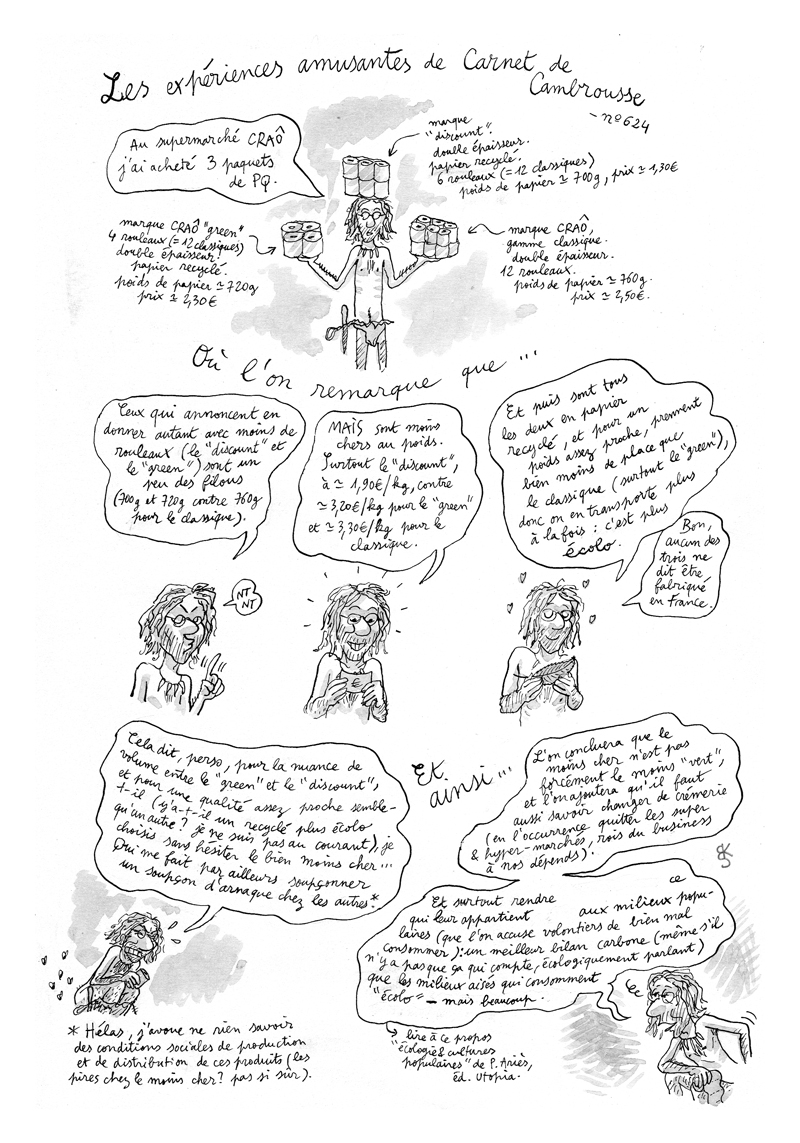 Les expériences amusantes de Carnet de
Cambrousse
- n° 624
Au supermarché CRAÔ
j'ai acheté 3 paquets
de PQ.
marque
"discount".
double épaisseur.
papier recyclé.
6 rouleaux (= 12 classiques)
poids de papier ≃ 700g, prix ≃ 1,30€
marque CRAÔ "green"
4 rouleaux (= 12 classiques)
double épaisseur.
papier recyclé.
poids de papier ≃ 720g
prix ≃ 2,30€
marque CRAÔ,
gamme classique.
double épaisseur.
12 rouleaux.
poids de papier ≃ 760g.
prix ≃ 2,50€.
Où l'on remarque que ...
Ceux qui annoncent en
donner autant avec moins de
rouleaux (le "discount" et
le "green") sont un
peu des filous
(700g et 720g contre 760g
pour le classique).
NT
NT
MAIS sont moins
chers au poids.
Surtout le "discount",
à ≃ 1,90€/kg, contre
≃ 3,20€/kg pour le "green"
et ≃ 3,30€/kg pour le
classique.
€
Et puis sont tous
les deux en papier
recyclé, et pour un
poids assez proche, prennent
bien moins de place que
le classique (surtout le "green"),
donc on en transporte plus
à la fois : c'est plus
écolo.
Bon,
aucun des
trois ne
dit être
fabriqué
en France.
Cela dit, perso, pour la nuance de
volume entre le "green" et le "discount",
et pour une qualité assez proche semble-
t-il (y'a-t-il un recyclé plus écolo
qu'un autre ? je ne suis pas au courant), je
choisis sans hésiter le bien moins cher...
Qui me fait par ailleurs soupçonner
un soupçon d'arnaque chez les autres*.
* Hélas, j'avoue ne rien savoir
des conditions sociales de production
et de distribution de ces produits (les
pires chez le moins cher ? pas si sûr).
Et
ainsi ...
L'on concluera que le
moins cher n'est pas
forcément le moins "vert",
et l'on ajoutera qu'il faut
aussi savoir changer de crémerie
(en l'occurrence quitter les super
& hyper-marchés, rois du business
à nos dépends).
Et surtout rendre ce
qui leur appartient aux milieux popu-
laires (que l'on accuse volontiers de bien mal
consommer) : un meilleur bilan carbone (même s'il
n'y a pas que ça qui compte, écologiquement parlant)
que les milieux aisés qui consomment
"écolo" - mais beaucoup.
lire à ce propos
"écologie & cultures
populaires" de P. Ariès,
éd. Utopia.